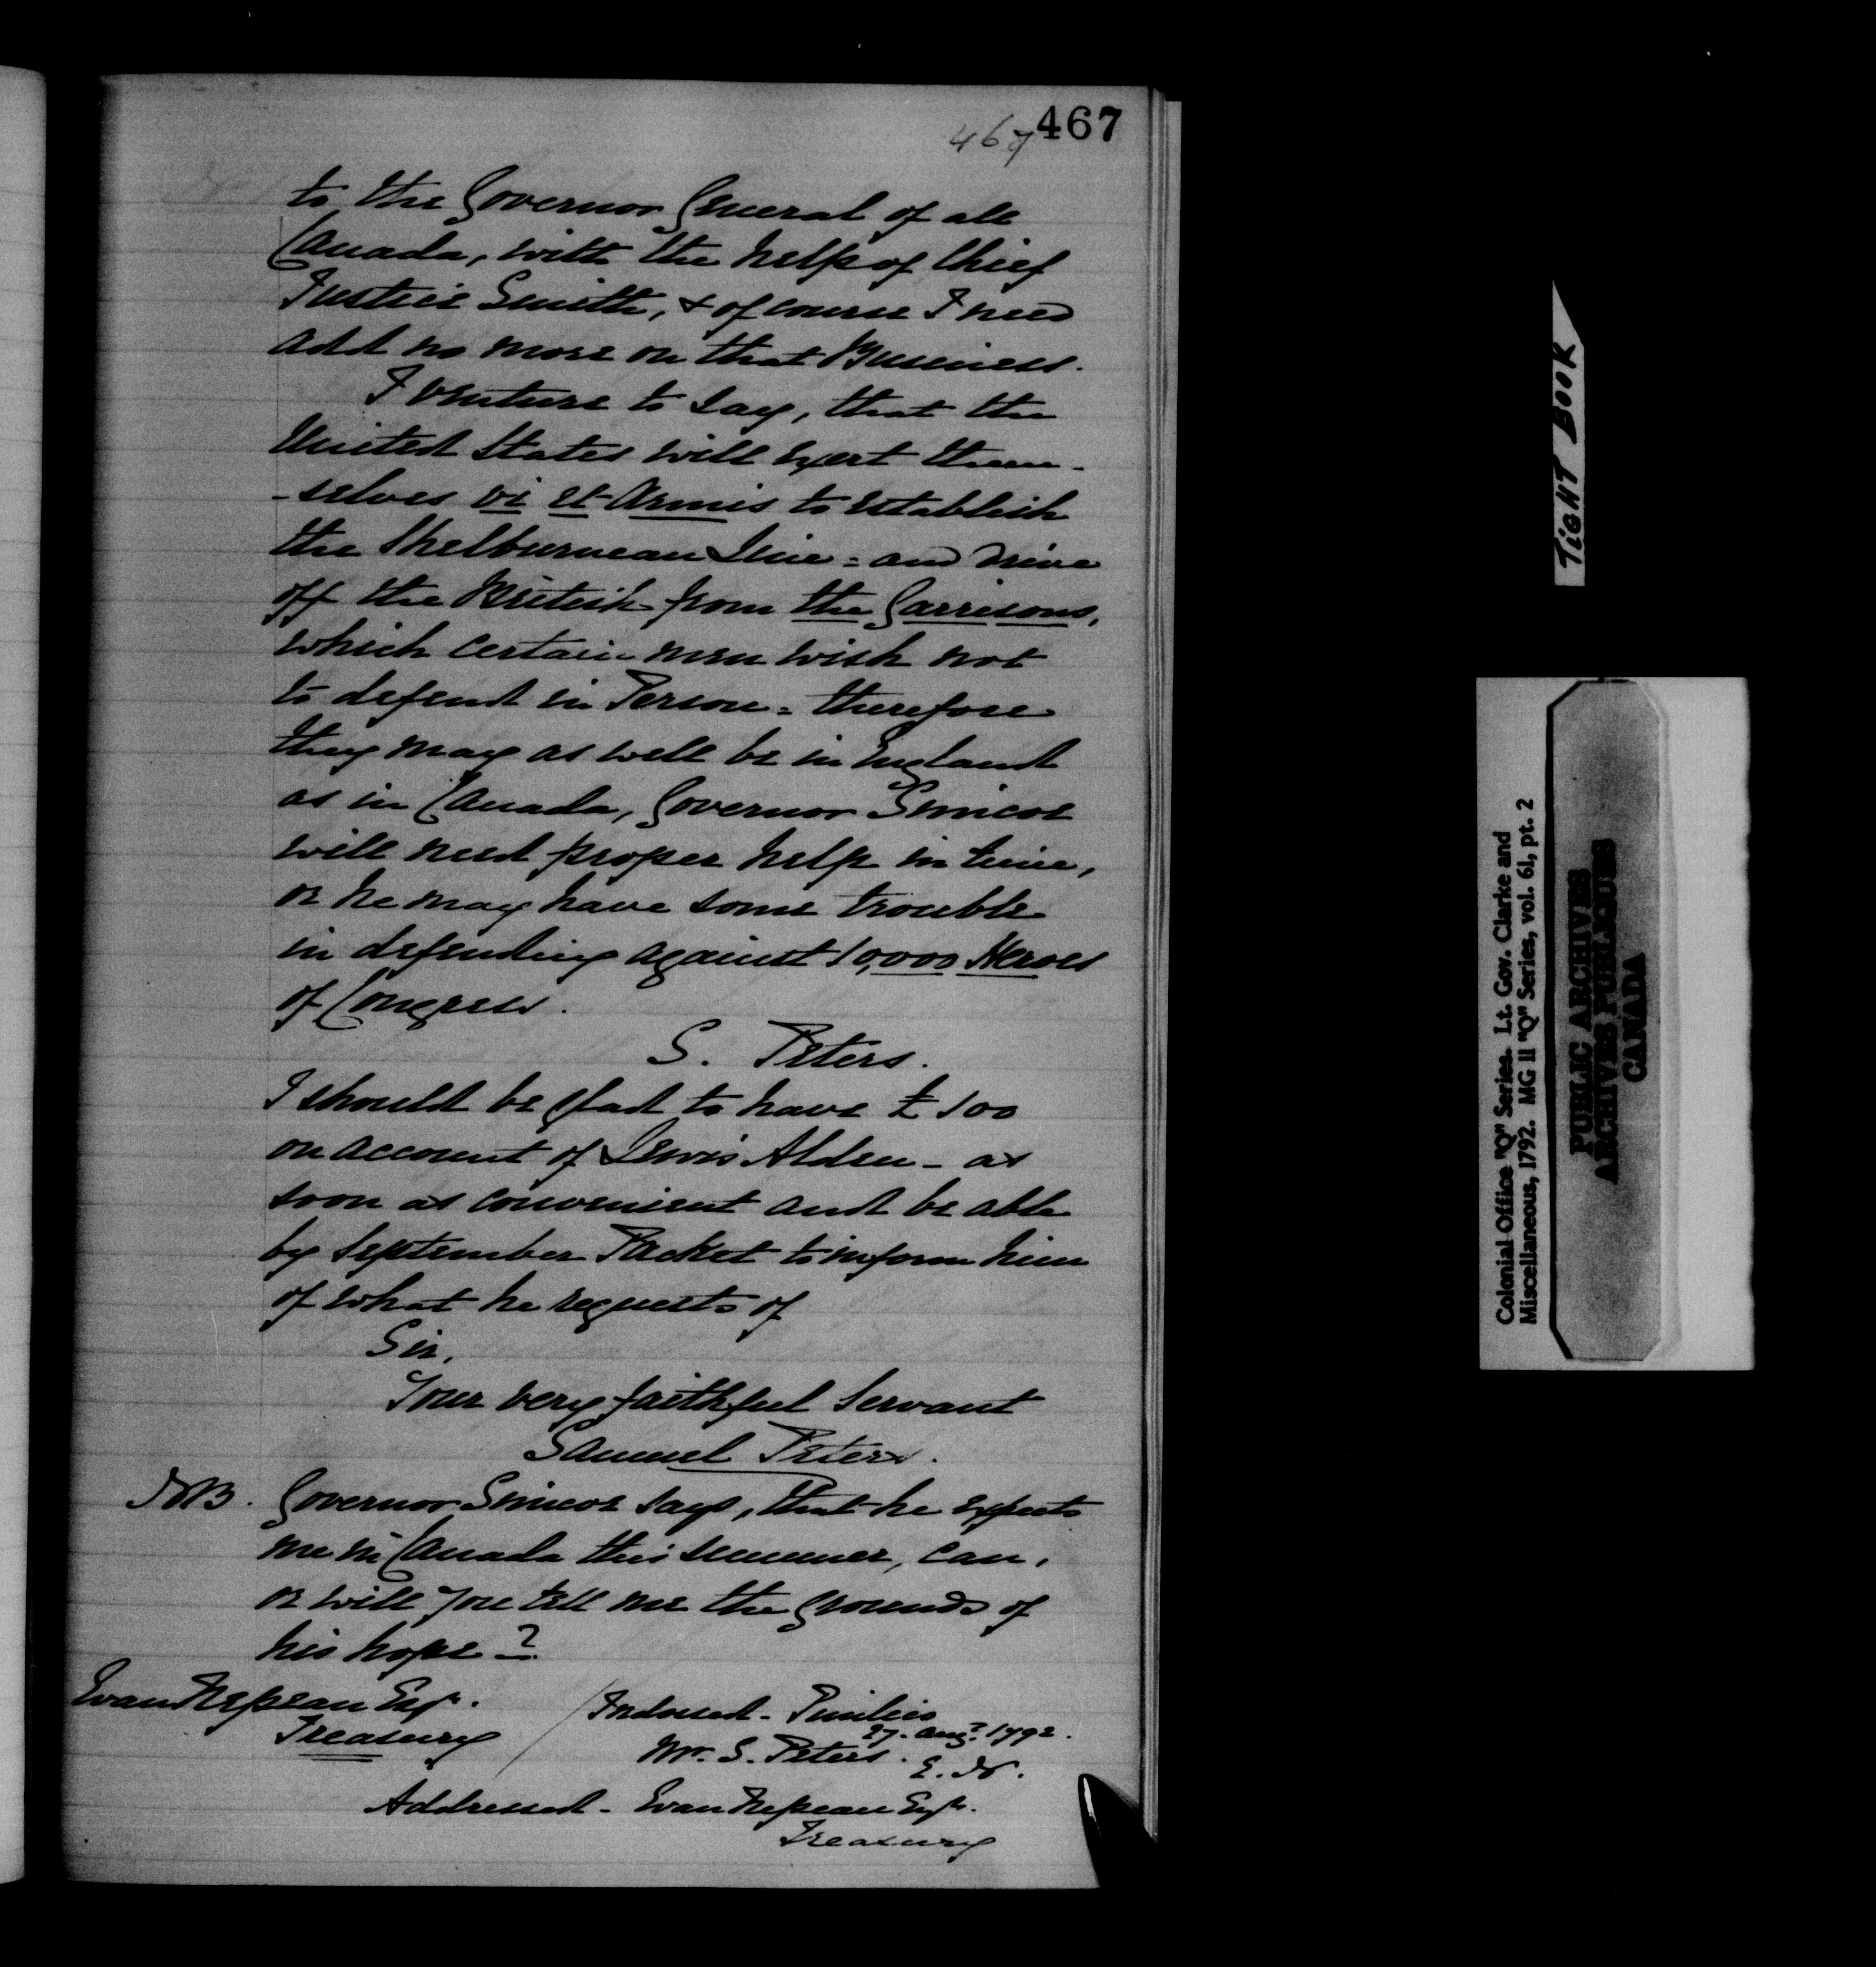 467 467
to the Governor General of all
Canada, with the help of Chief
Justice Smith, & of course I need
add no more on that Business.
I venture to say, that the
United States will exert them-
-selves vi et Armis to establish
the Shelburnean Line = and drive
off the British from the Garrisons,
which certain men wish not
to defend in Person = therefore
they may as well be in England
as in Canada, Governor Simcoe
will need proper help in time,
or he may have some trouble
in defending against 10,000 Heroes
of Congress.
S. Peters.
I should be glad to have £100
on account of Lewis Alden - as
soon as convenient and be able
by September Packet to inform him
of what he requests of
Sir,
Your very faithful Servant
Samuel Peters.
NB. Governor Simcoe says, that he expects
me in Canada this summer, can,
or will you tell me the grounds of
his hope?
Evan Nepean Esqr.
Treasury
Indorsed - Pimlico
27. Augt. 1792.
Mr. S. Peters.
E. N.
Addressed - Evan Nepean Esqr.
Treasury
TIGHT BOOK
Colonial Office "Q" Series. Lt. Gov. Clarke and
Miscellaneous, 1792. MG 11 "Q" Series, vol. 61, pt. 2
PUBLIC ARCHIVES
ARCHIVES PUBLIQUES
CANADA